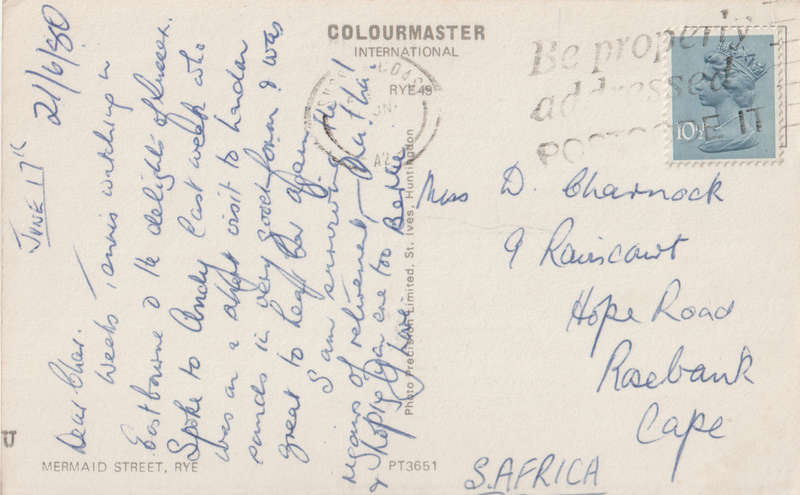 COLOURMASTER
INTERNATIONAL
RYE 49
Be properly
addressed
POSTCODE IT
10½P
JUNE 17th
21/6/80
Dear Char.
Weeks tennis watching in
Eastbourne & the delights of Sussex.
Spoke to Andy last week who
was on a short visit to London
sounds in very good form & was
great to hear her again.
I am surviving the
rigours of retirement, Char! ha!
& hope you are too Bernie
Love
Miss D. Charnock
9 Rainscourt
Hope Road
Rosebank
Cape
S. AFRICA
Photo Precision Limited, St. Ives, Huntingdon
MERMAID STREET, RYE
PT3651